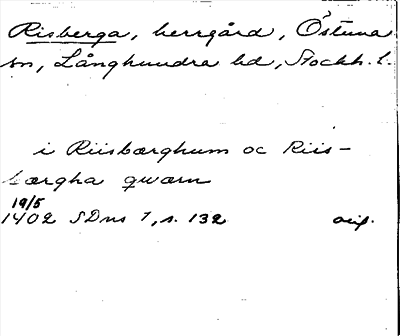 Risberga, herrgård, Östuna
sn, Långhundra hd, Stockh. l.
i Riisbærghum oc Riis-
bærgha qwærn
19/5
1402 SDns 1, s. 132 orig.